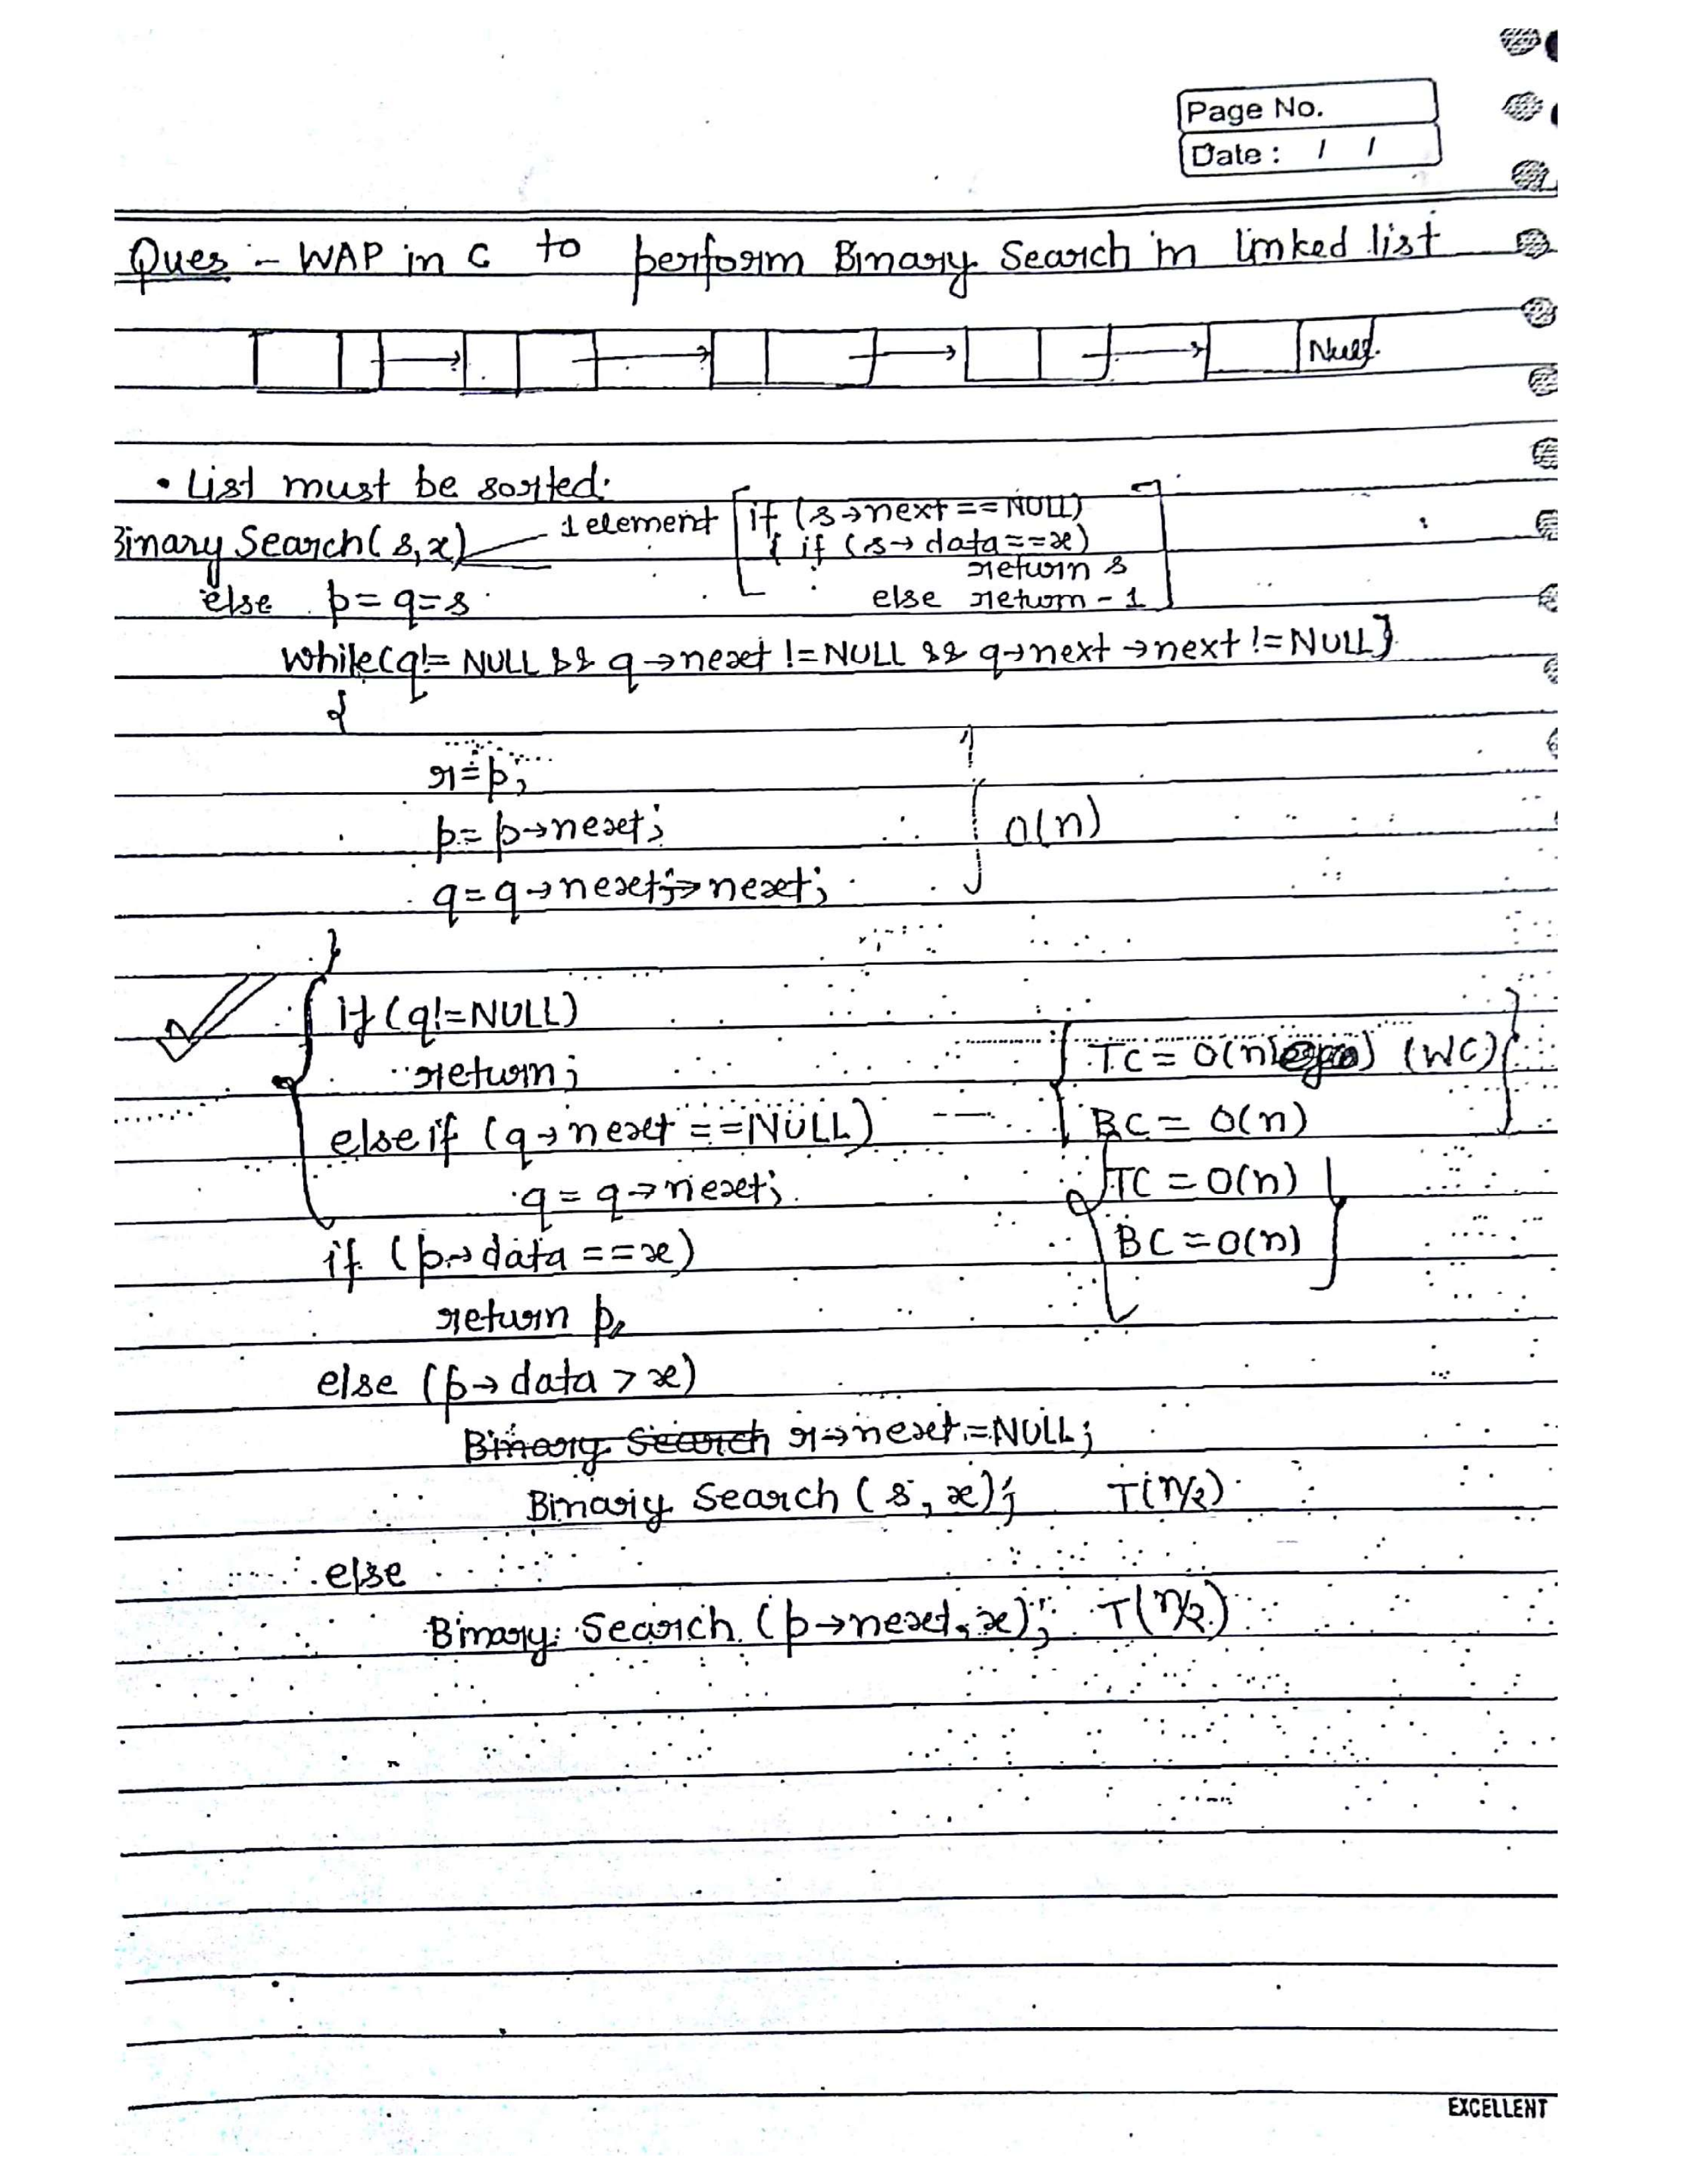 Page No.
Date : / /
Ques :- WAP in C to perform Binary Search in linked list
Null.
• List must be sorted.
Binary Search(s,x) 1 element if (s→next==NULL)
{ if (s→data==x)
return s
else return -1
else p=q=s
while(q!= NULL && q→next !=NULL && q→next→next !=NULL)
{
r=p;
p=p→next; O(n)
q=q→next→next;
}
if (q!=NULL)
return; TC = O(n) (WC)
else if (q→next ==NULL) BC = O(n)
q = q→next; TC = O(n)
if (p→data ==x) BC = O(n)
return p;
else (p→data > x)
Binary Search r→next=NULL;
Binary Search (s, x); T(n/2)
else
Binary Search (p→next, x); T(n/2)
EXCELLENT